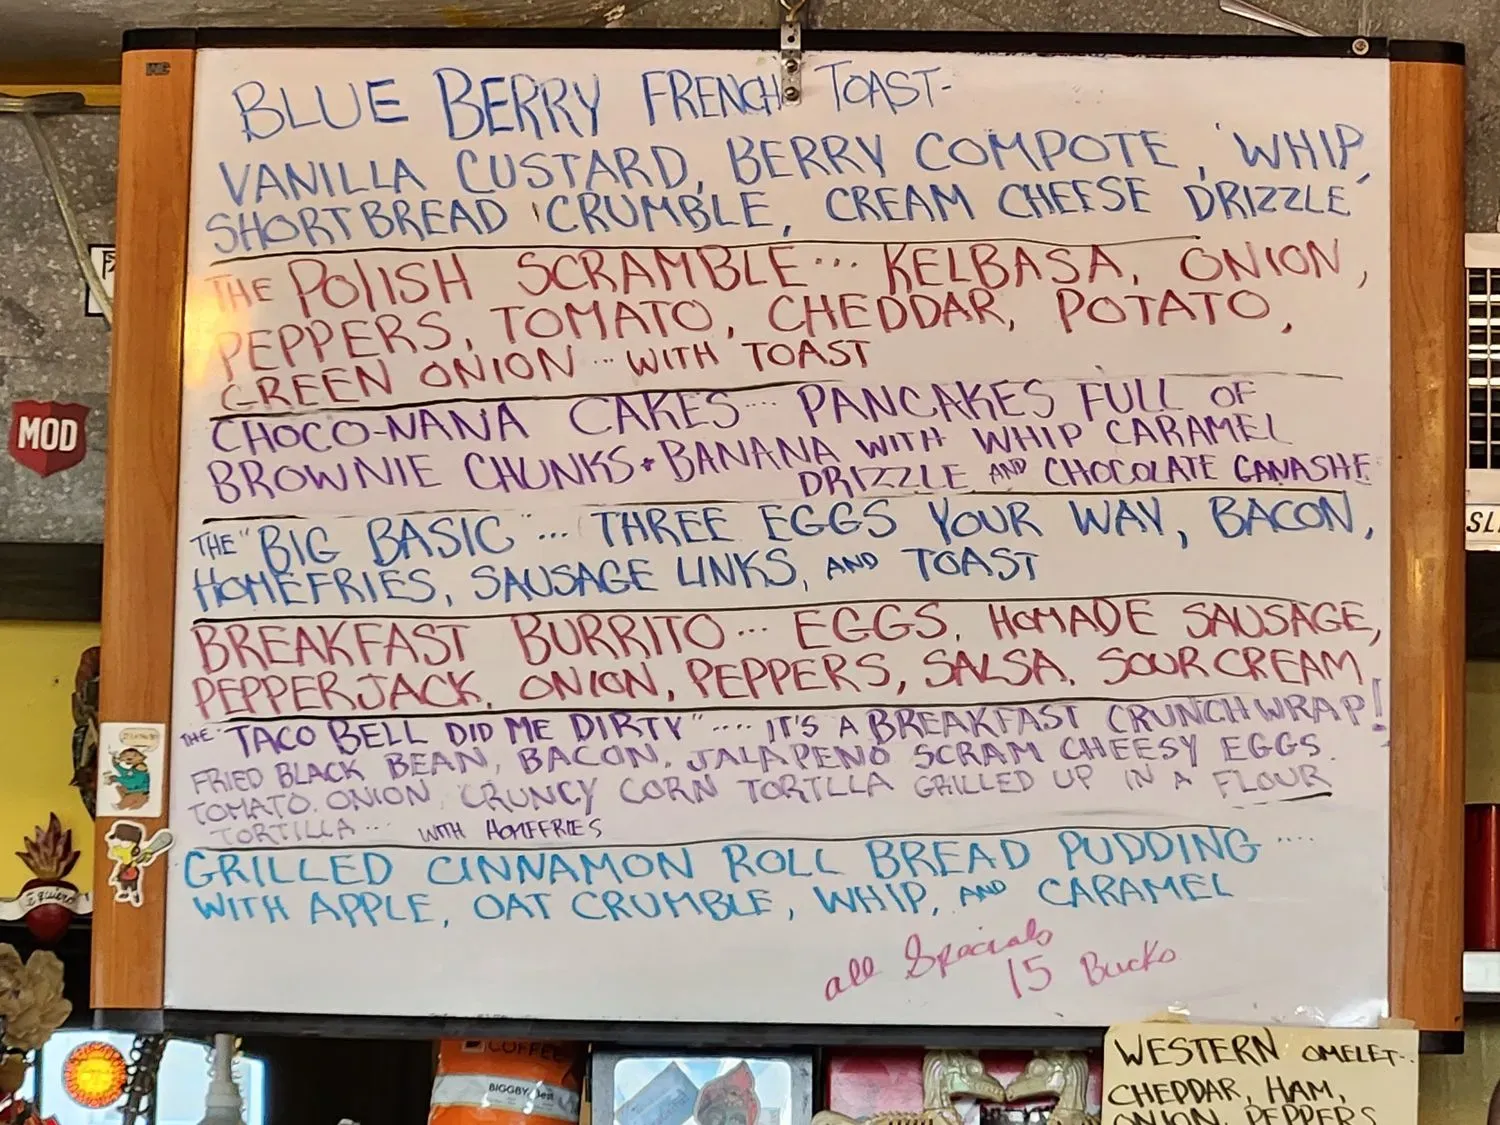 BLUE BERRY FRENCH TOAST-
VANILLA CUSTARD, BERRY COMPOTE, WHIP,
SHORTBREAD CRUMBLE, CREAM CHEESE DRIZZLE
THE POlISH SCRAMBLE... KELBASA, ONION,
PEPPERS, TOMATO, CHEDDAR, POTATO,
GREEN ONION... WITH TOAST
CHOCO-NANA CAKES.... PANCAKES FULL OF
BROWNIE CHUNKS + BANANA WITH WHIP CARAMEL
DRIZZLE AND CHOCOLATE GANASHE
THE "BIG BASIC"... THREE EGGS YOUR WAY, BACON,
HOMEFRIES, SAUSAGE LINKS, AND TOAST
BREAKFAST BURRITO... EGGS, HOMADE SAUSAGE,
PEPPERJACK, ONION, PEPPERS, SALSA, SOUR CREAM
THE "TACO BELL DID ME DIRTY".... IT'S A BREAKFAST CRUNCHWRAP!
FRIED BLACK BEAN, BACON, JALAPENO SCRAM CHEESY EGGS.
TOMATO. ONION CRUNCY CORN TORTLLA GRILLED UP IN A FLOUR
TORTILLA... WITH HOMEFRIES
GRILLED CINNAMON ROLL BREAD PUDDING....
WITH APPLE, OAT CRUMBLE, WHIP, AND CARAMEL
all Specials
15 Bucks
MOD
SL
COFFEE
BIGGBY Best
WESTERN OMELET..
CHEDDAR, HAM,
ONION, PEPPERS